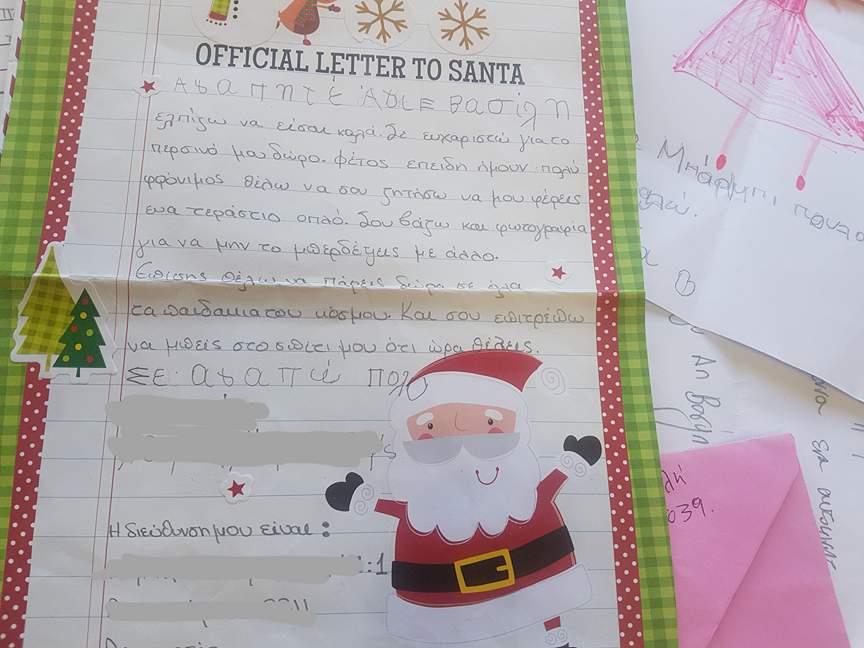 OFFICIAL LETTER TO SANTA
Αγαπητέ Άγιε Βασίλη
ελπίζω να είσαι καλά. Σε ευχαριστώ για το
περσινό μου δώρο. Φέτος επειδή ήμουν πολύ
φρόνιμος θέλω να σου ζητήσω να μου φέρεις
ένα τεράστιο οπλό. Σου βάζω και φωτογραφία
για να μην το μπερδέψεις με άλλο.
Επίσης θέλω να πάρεις δώρα σε όλα
τα παιδάκια του κόσμου. Και σου επιτρέπω
να μπεις στο σπίτι μου ότι ώρα θέλεις.
ΣΕ αγαπώ πολύ
Η διεύθυνση μου είναι:
Μπάρμπι
039.